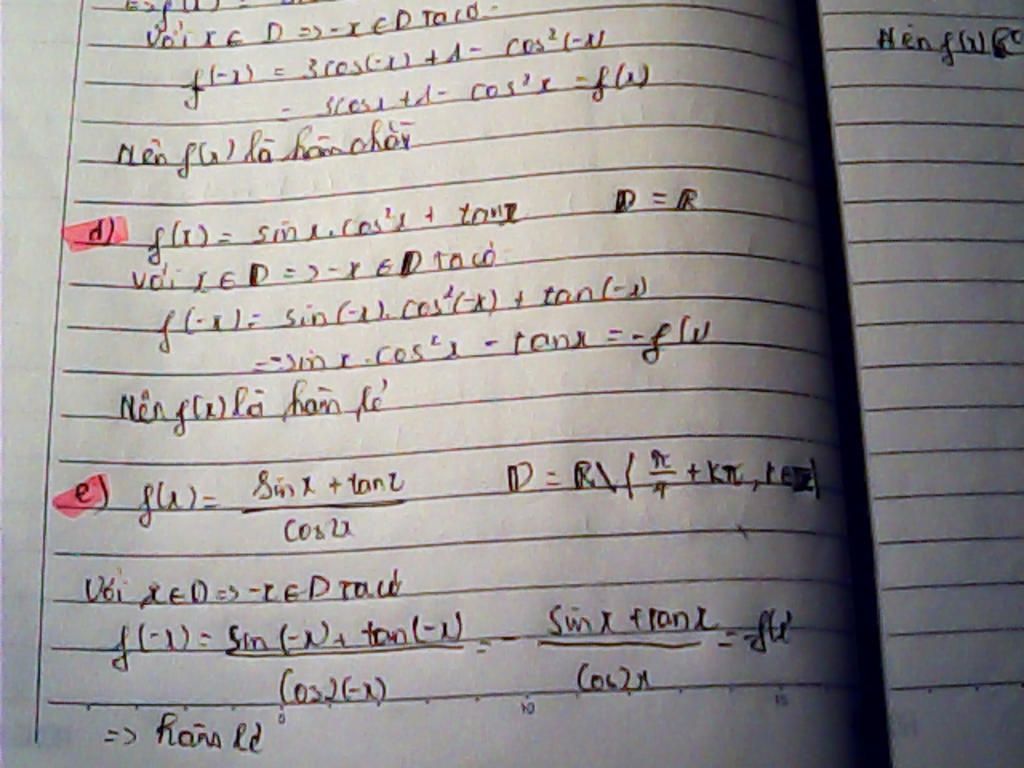 Với x ∈ D => -x ∈ D ta có.
Nên f(x)
f(-x) = 3cos(-x) + 1 - cos²(-x)
= 3cosx + 1 - cos²x = f(x)
Nên f(x) là hàm chẵn
d) f(x) = sinx.cos²x + tanx D = R
Với x ∈ D => -x ∈ D ta có
f(-x) = sin(-x).cos²(-x) + tan(-x)
= -sinx.cos²x - tanx = -f(x)
Nên f(x) là hàm lẻ
e) f(x) = (sinx + tanx)/cos2x D = R\{π/4 + kπ, k∈Z}
Với x∈D => -x∈D ta có
f(-x) = (sin(-x) + tan(-x))/(cos2(-x)) = - (sinx + tanx)/(cos2x) = -f(x)
=> hàm lẻ